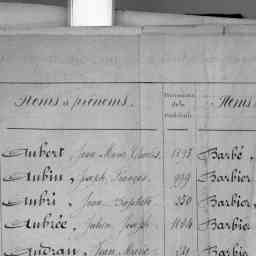 Noms et prénoms. Numéros de la matricule Noms
Aubert, Jean Marie Charles, 1193 Barbé,
Aubin, Joseph François, 939 Barbier
Aubri, Jean Baptiste, 350 Barbier
Aubrée, Julien Joseph, 1104 Barbier
Audran, Jean Marie Barbier